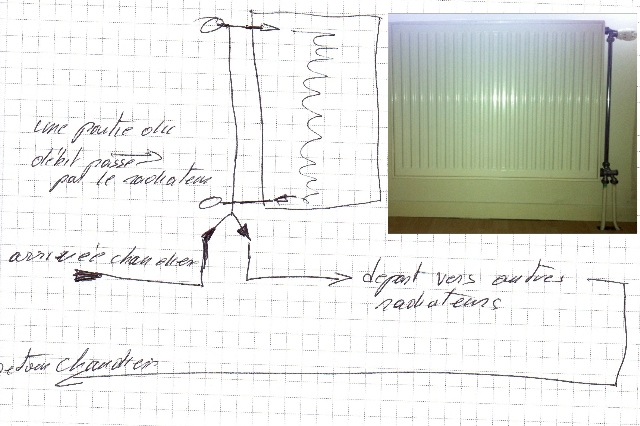 une partie du
débit passe
par le radiateur
arrivée chaudier
départ vers autres
radiateurs
retour chaudier